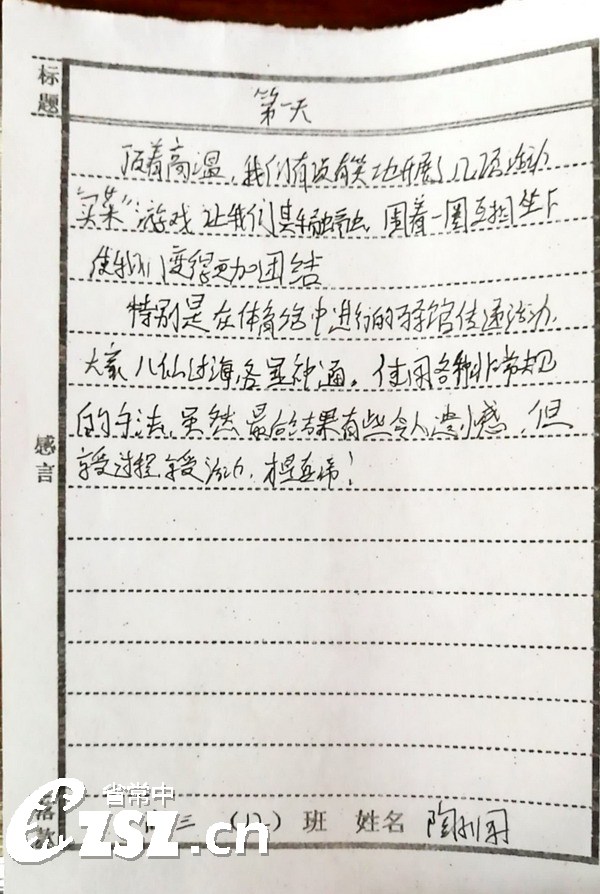 标题
第一天
顶着高温,我们有说有笑地开展了几项活动
“买菜”游戏让我们其乐融融,围着一圈互相坐下
使我们变得更加团结
特别是在体育馆中进行的传递活动,
大家八仙过海各显神通。使用各种非常规
的手法,虽然最后结果有些令人遗憾,但
享受过程,享受活动,才是真谛!
感言
落款
三 (12) 班 姓名 陶
省常中
czsz.cn